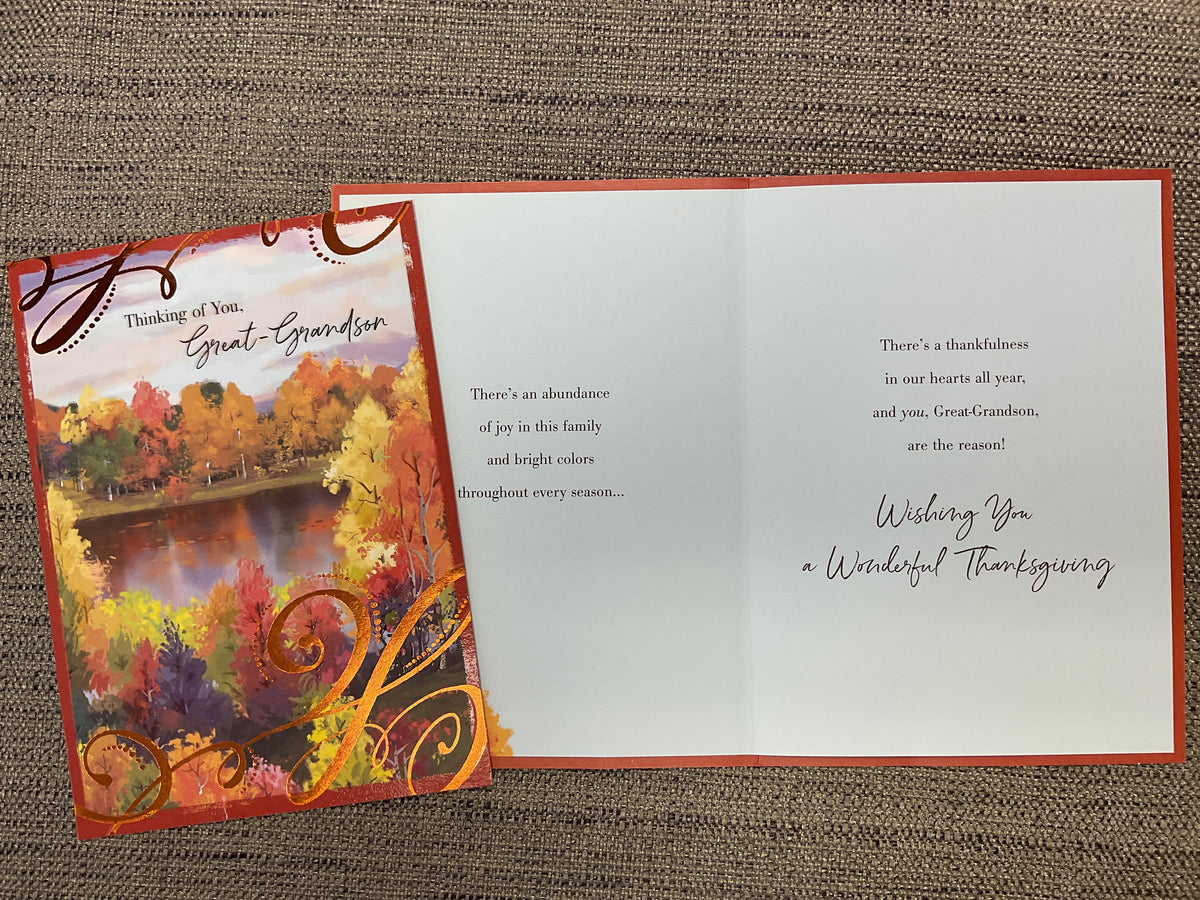 Thinking of You,
Great-Grandson
There's an abundance
of joy in this family
and bright colors
throughout every season...
There's a thankfulness
in our hearts all year,
and you, Great-Grandson,
are the reason!
Wishing You
a Wonderful Thanksgiving